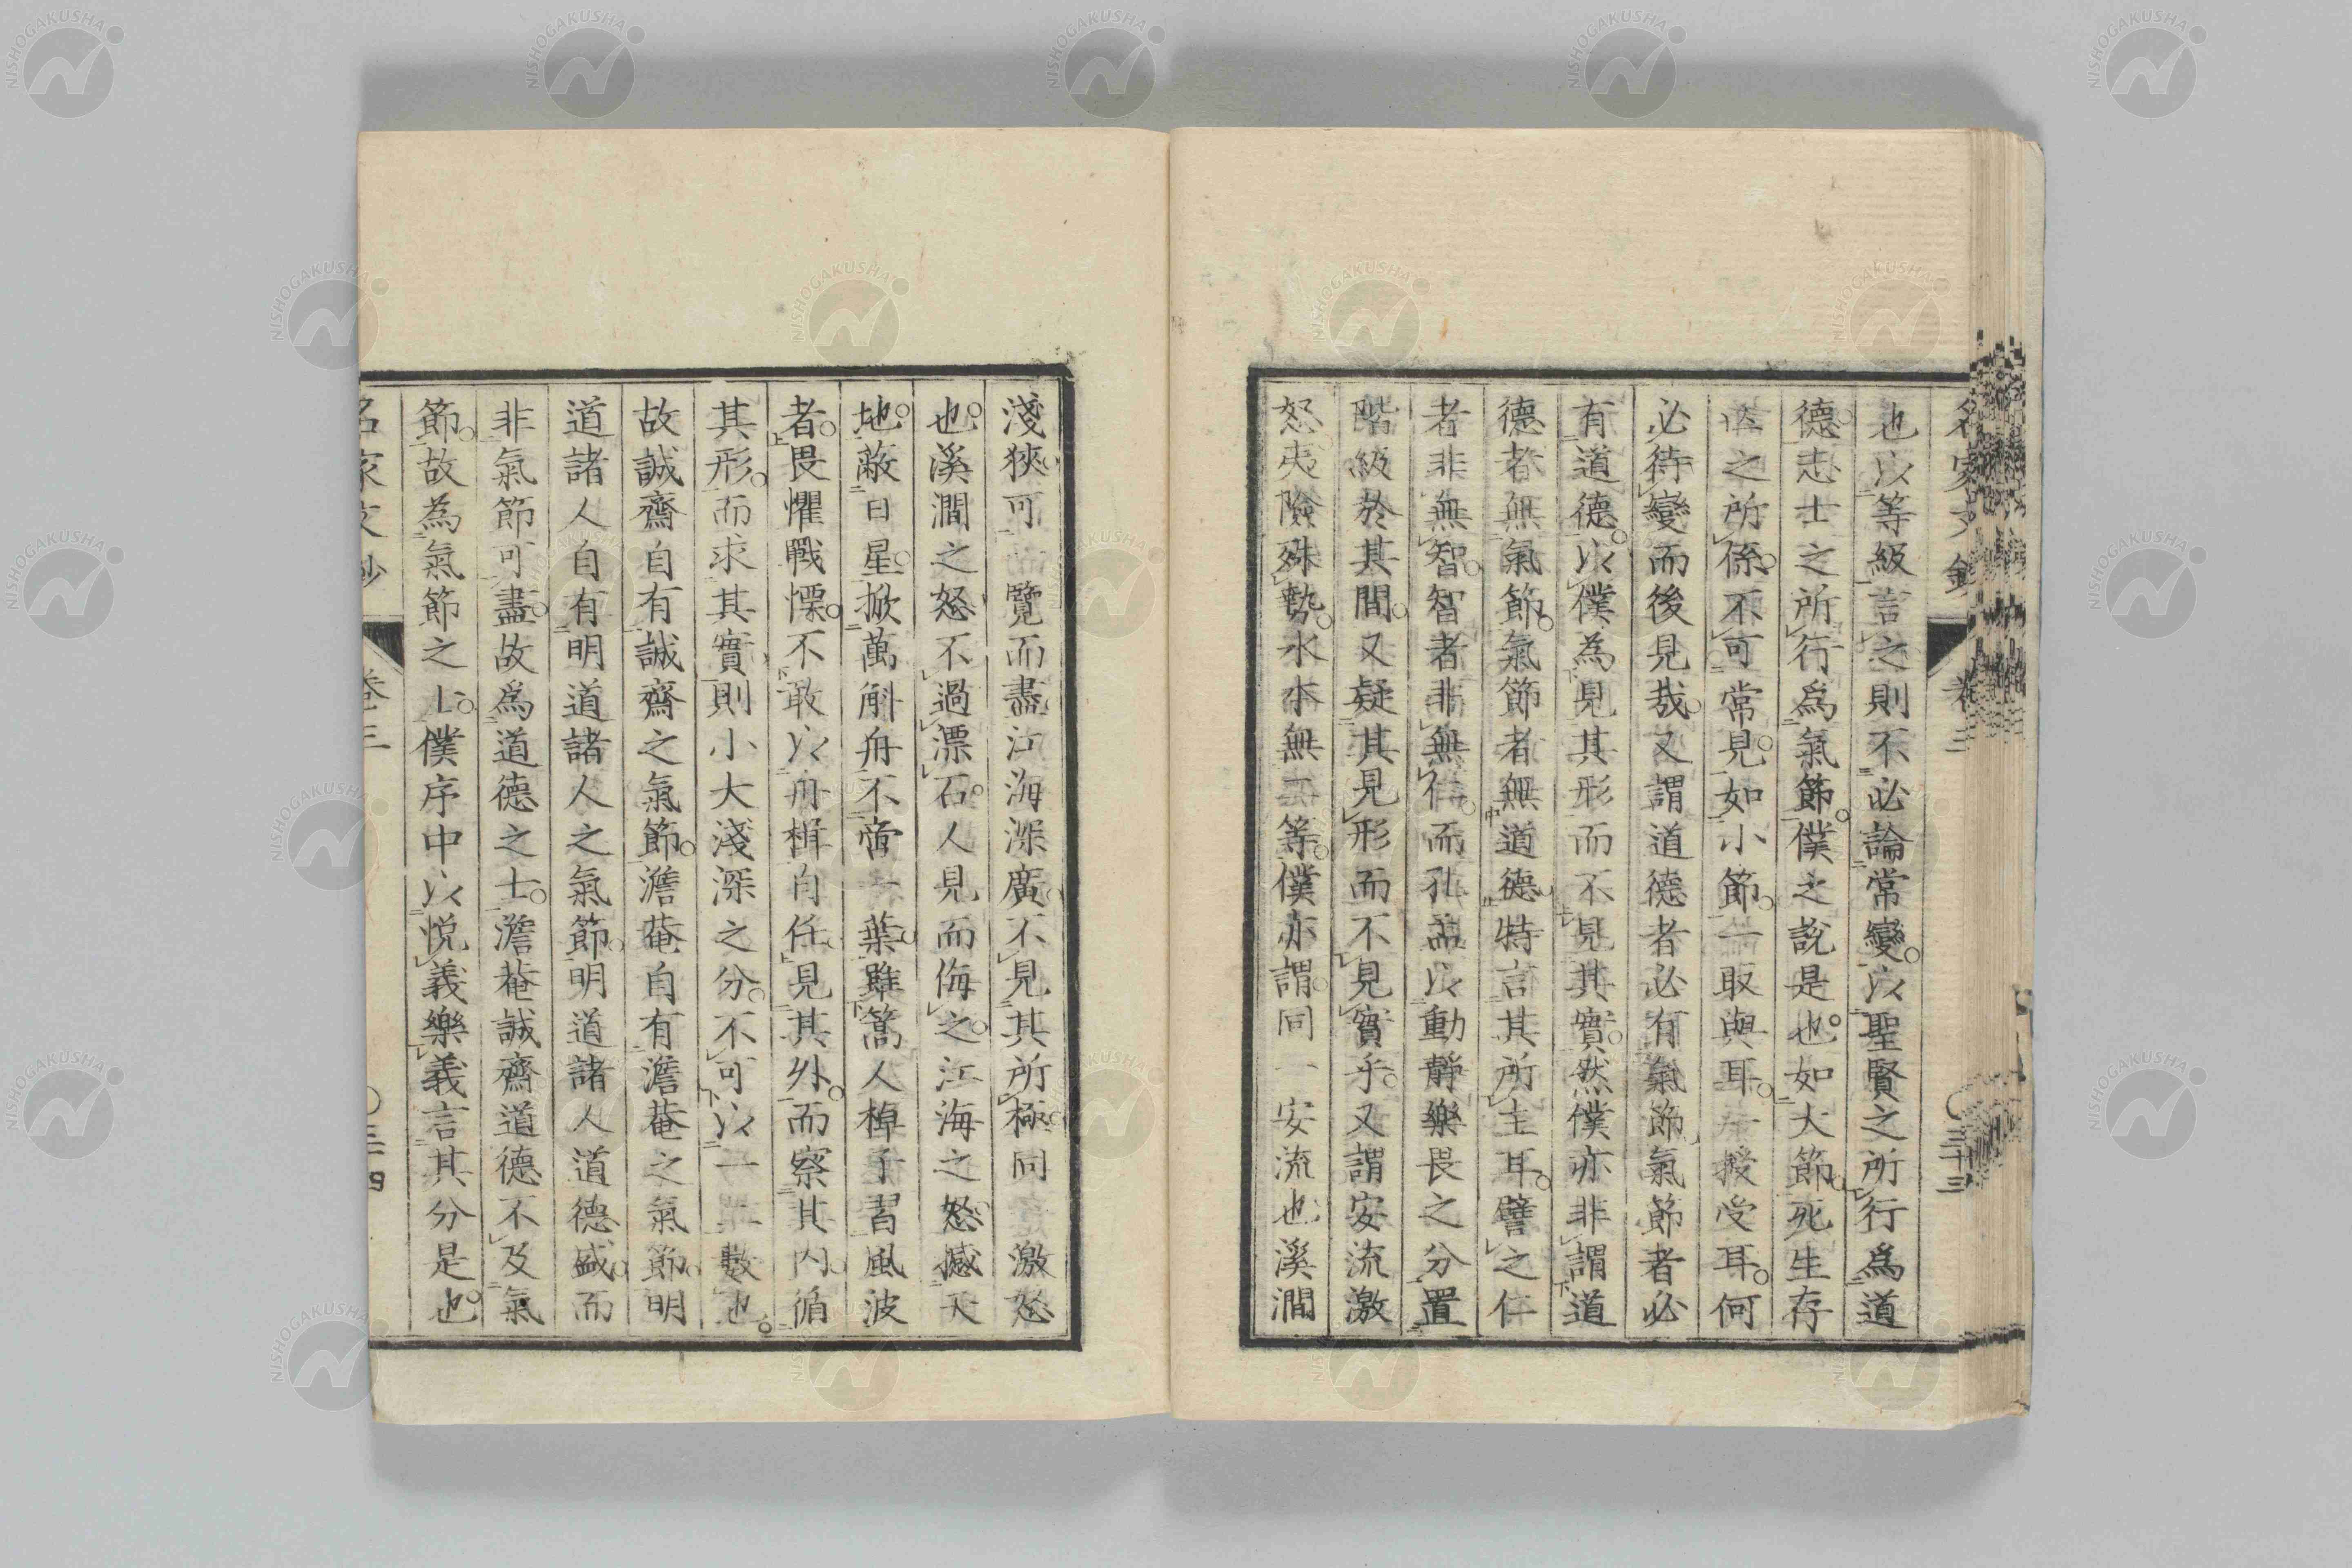 名家文鈔 卷三 ○三十三
也以等級言之則不必論常變以聖賢之所行爲道
德志士之所行爲氣節僕之說是也如大節死生存
之所係不可常見如小節一取與耳一授受耳何
必待變而後見哉又謂道德者必有氣節氣節者必
有道德以僕為見其形而不見其實然僕亦非謂道
德者無氣節氣節者無道德特言其所主耳譬之仁
者非無智智者非無仁而孔孟以動靜樂畏之分置
階級於其間又疑其見形而不見實乎又謂安流激
怒夷險殊勢水本無二等僕亦謂同一安流也溪澗
淺狹可一覽而盡江海深廣不見其所極同一激怒
也溪澗之怒不過漂石人見而侮之江海之怒撼天
地蔽日星掀萬斛舟不啻一葉雖篙人棹子習風波
者畏懼戰慄不敢以舟楫自任見其外而察其內循
其形而求其實則小大淺深之分不可以一二數也
故誠齋自有誠齋之氣節澹菴自有澹菴之氣節明
道諸人自有明道諸人之氣節明道諸人道德盛而
非氣節可盡故爲道德之士澹菴誠齋道德不及氣
節故為氣節之士僕序中以悅義樂義言其分是也
名家文鈔 卷三 ○三四
NISHOGAKUSHA